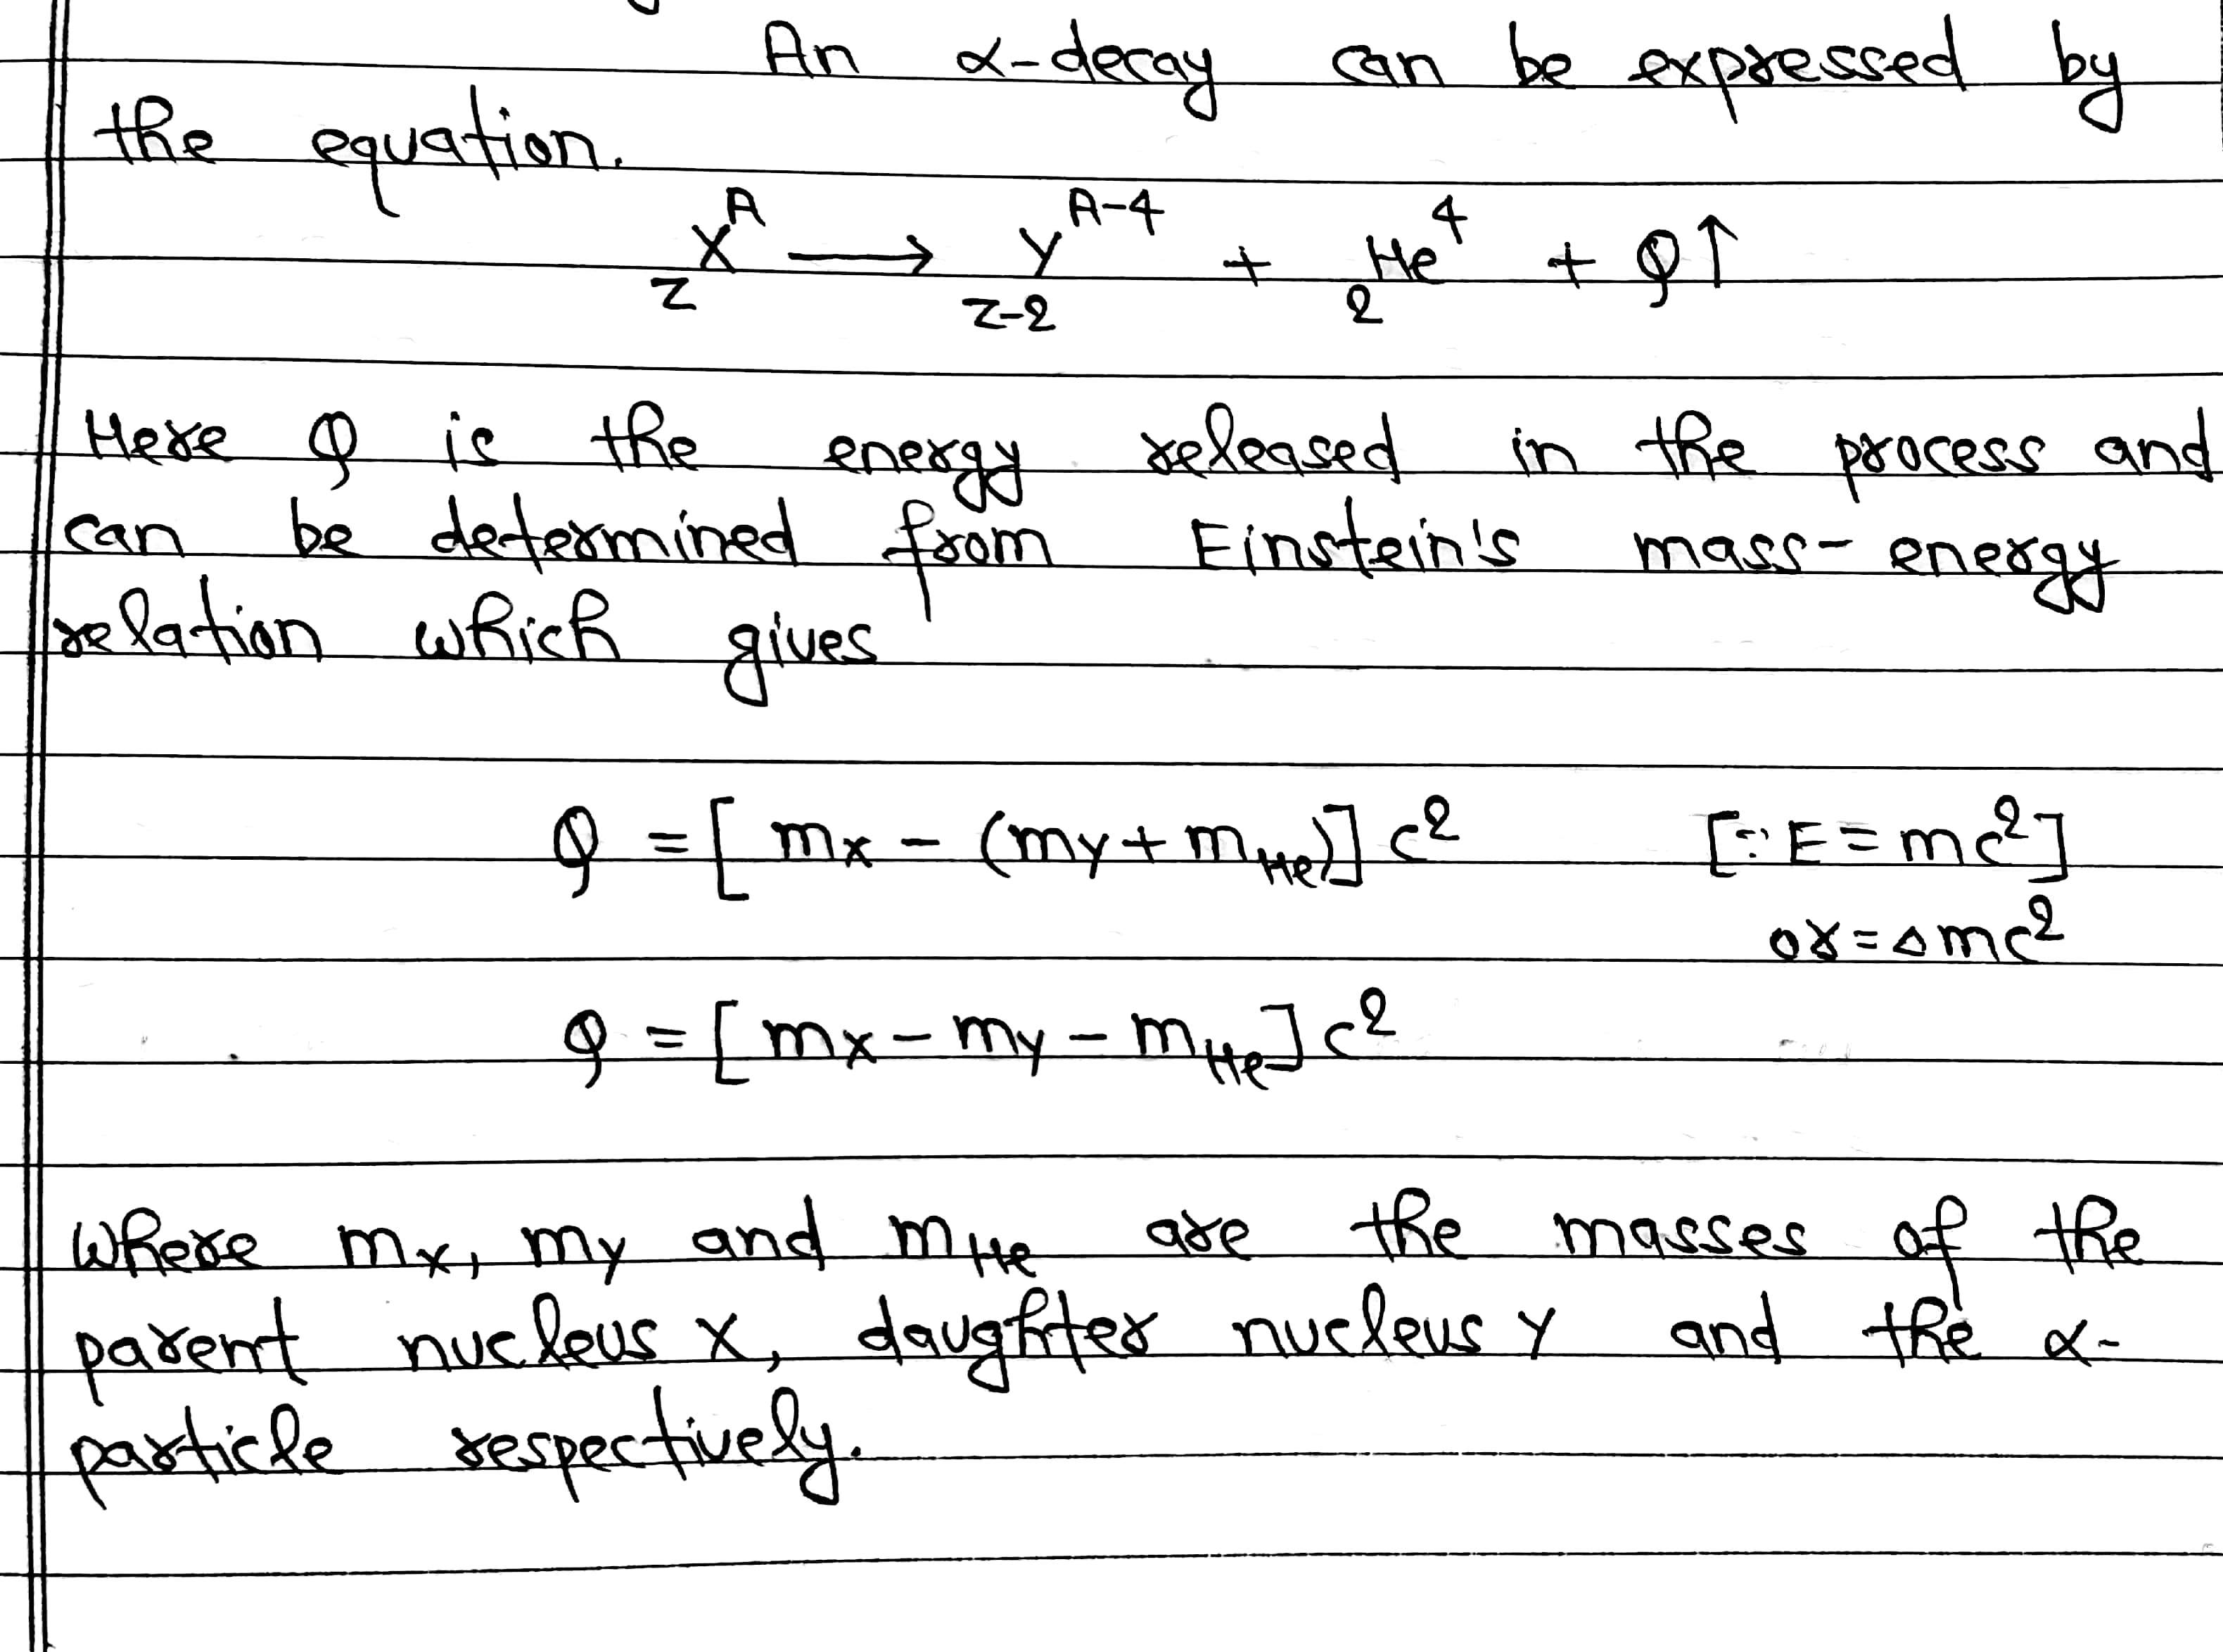 An α-decay can be expressed by
the equation.
zX^A ⟶ z-2Y^A-4 + 2He^4 + Q↑
Here Q is the energy released in the process and
can be determined from Einstein's mass-energy
relation which gives
Q = [mx - (my + mHe)] c² [∵ E = mc²]
or = Δmc²
Q = [mx - my - mHe] c²
where mx, my and mHe are the masses of the
parent nucleus X, daughter nucleus Y and the α-
particle respectively.